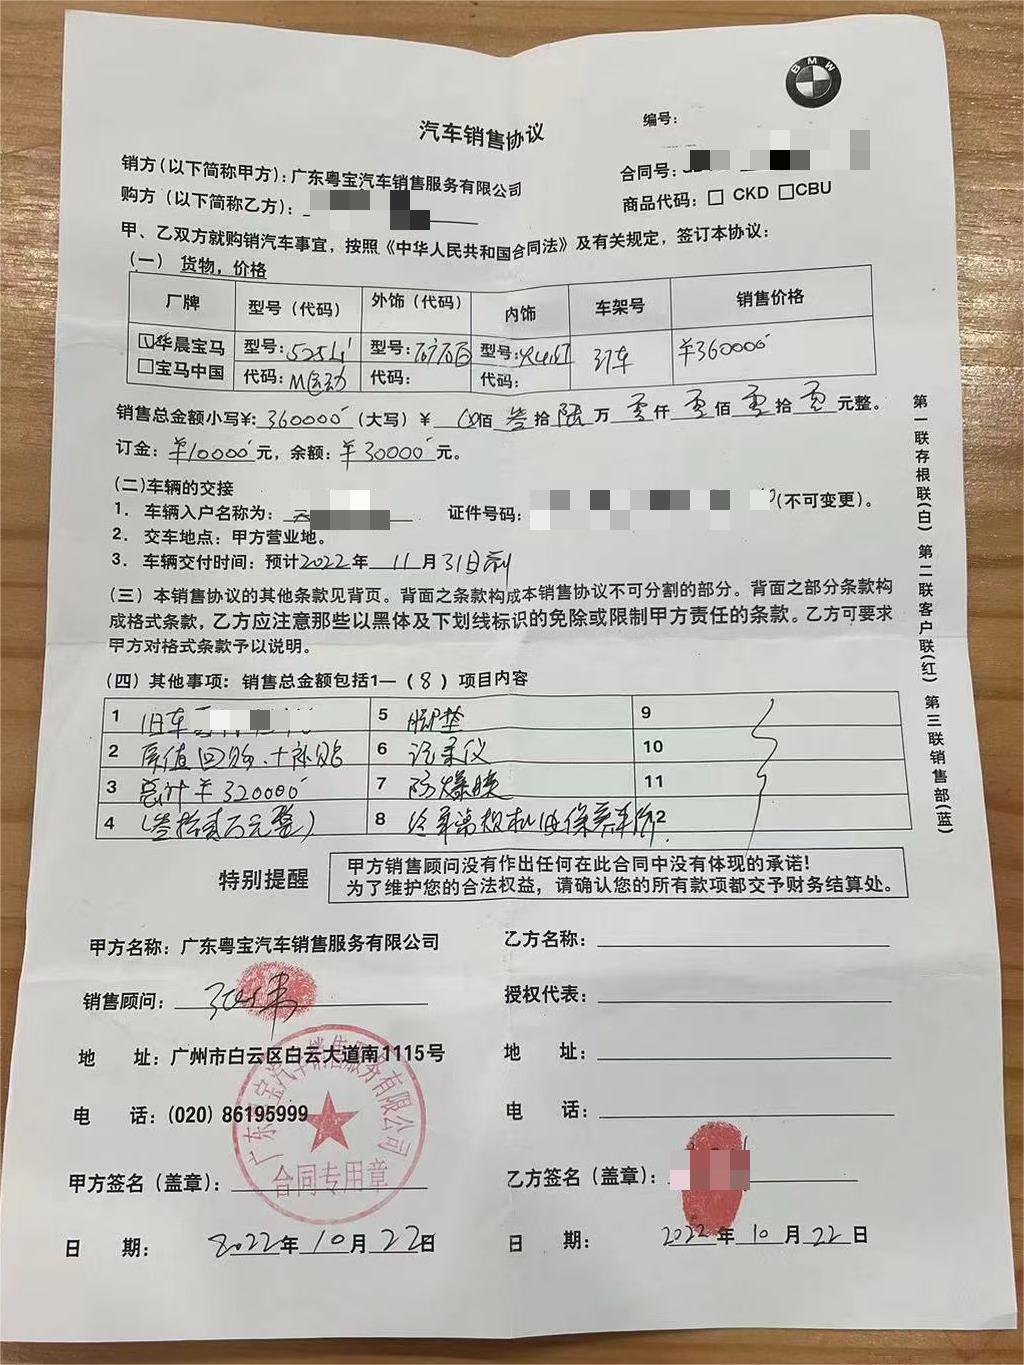 BMW
汽车销售协议
编号：
销方（以下简称甲方）：广东粤宝汽车销售服务有限公司
合同号：
购方（以下简称乙方）：
商品代码：□ CKD □CBU
甲、乙双方就购销汽车事宜，按照《中华人民共和国合同法》及有关规定，签订本协议：
（一） 货物，价格
厂牌 型号（代码） 外饰（代码） 内饰 车架号 销售价格
☑华晨宝马 型号：525Li 型号：矿石白 型号：火山红 订车 ¥360000
□宝马中国 代码：M运动 代码： 代码：
销售总金额小写¥：360000（大写）¥ 佰 叁 拾 陆 万 零 仟 零 佰 零 拾 零 元整。
订金：¥10000元，余额：¥30000元。
（二）车辆的交接
1. 车辆入户名称为： 证件号码： （不可变更）。
2. 交车地点：甲方营业地。
3. 车辆交付时间：预计2022年 11 月 31日前
（三）本销售协议的其他条款见背页。背面之条款构成本销售协议不可分割的部分。背面之部分条款构
成格式条款，乙方应注意那些以黑体及下划线标识的免除或限制甲方责任的条款。乙方可要求
甲方对格式条款予以说明。
（四）其他事项：销售总金额包括1—（8）项目内容
1 旧车 5 脚垫 9
2 原值回购、+补贴 6 记录仪 10
3 总计¥320000 7 防爆膜 11
4 （叁拾贰万元整） 8 保养 12
特别提醒
甲方销售顾问没有作出任何在此合同中没有体现的承诺！
为了维护您的合法权益，请确认您的所有款项都交予财务结算处。
甲方名称：广东粤宝汽车销售服务有限公司
乙方名称：
销售顾问：
授权代表：
地 址：广州市白云区白云大道南1115号
地 址：
电 话：(020) 86195999
电 话：
甲方签名（盖章）：
乙方签名（盖章）：
日 期：2022年10月22日
日 期：2022年10月22日
广东粤宝汽车销售服务有限公司
合同专用章
第一联存根联(白) 第二联客户联(红) 第三联销售部(蓝)